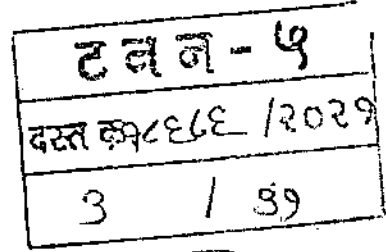 ट न न - ५
दस्त क्र१८६८६ /२०२१
३ / ३१